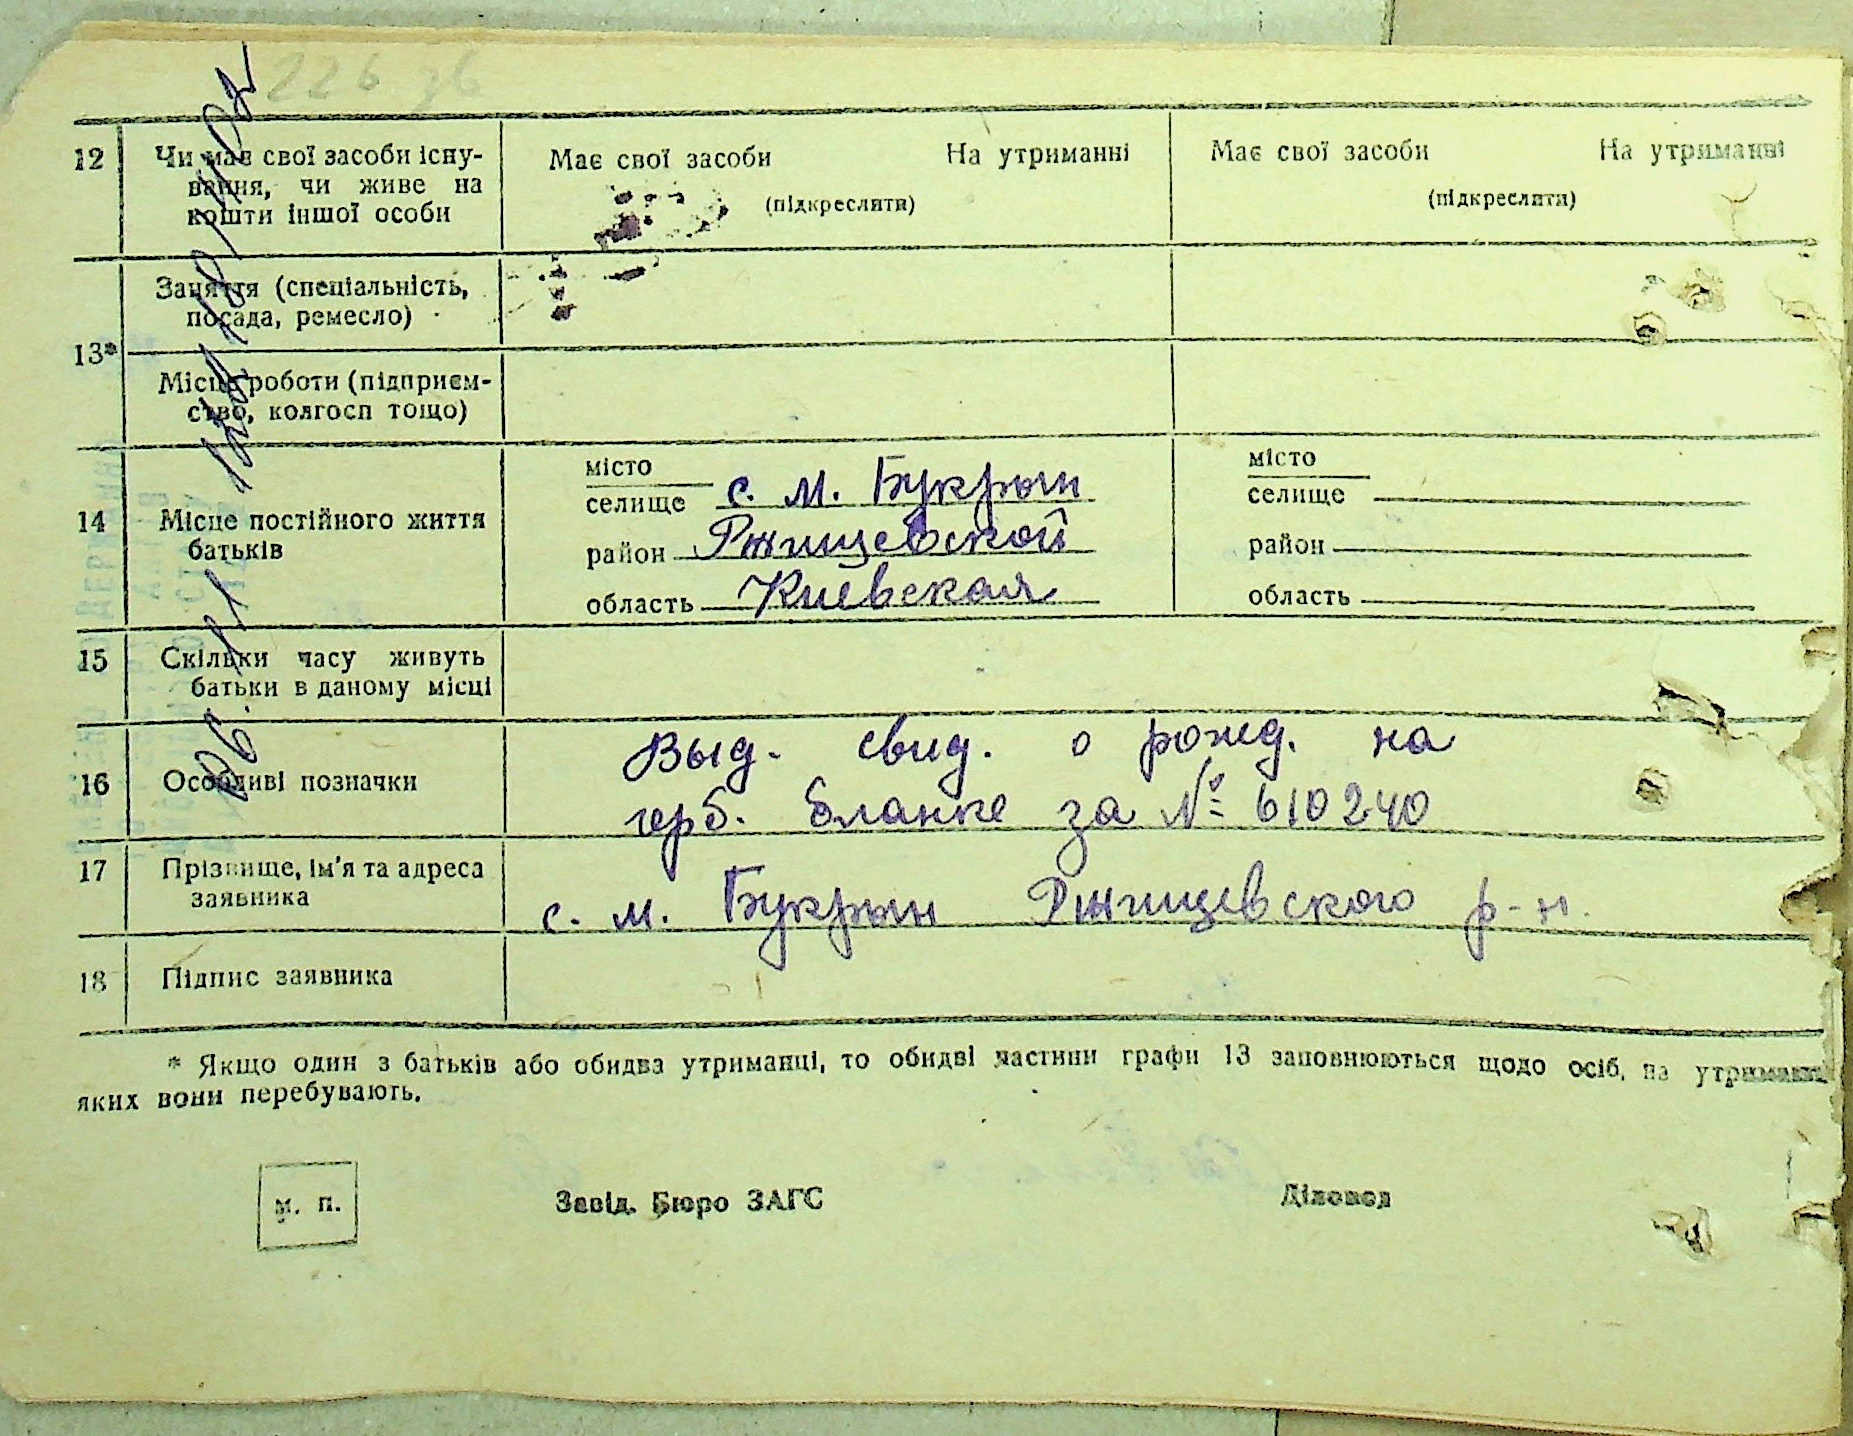 226 зв
12 Чи має свої засоби існу- Має свої засоби На утриманні Має свої засоби На утриманні
вання, чи живе на (підкреслити) (підкреслити)
кошти іншої особи
13* Заняття (спеціальність,
посада, ремесло)
Місце роботи (підприєм-
ство, колгосп тощо)
14 Місце постійного життя
батьків
місто
селище с. М. Букрын
район Ржищевской
область Киевская
місто
селище
район
область
15 Скільки часу живуть
батьки в даному місці
16 Особливі позначки Выд. свид. о рожд. на
герб. бланке за № 610240
17 Прізвище, ім'я та адреса
заявника с. М. Букрын Ржищевского р-н.
18 Підпис заявника
* Якщо один з батьків або обидва утриманці, то обидві частини графи 13 заповнюються щодо осіб, на утриманні
яких вони перебувають.
м. п. Завід. Бюро ЗАГС Діловод